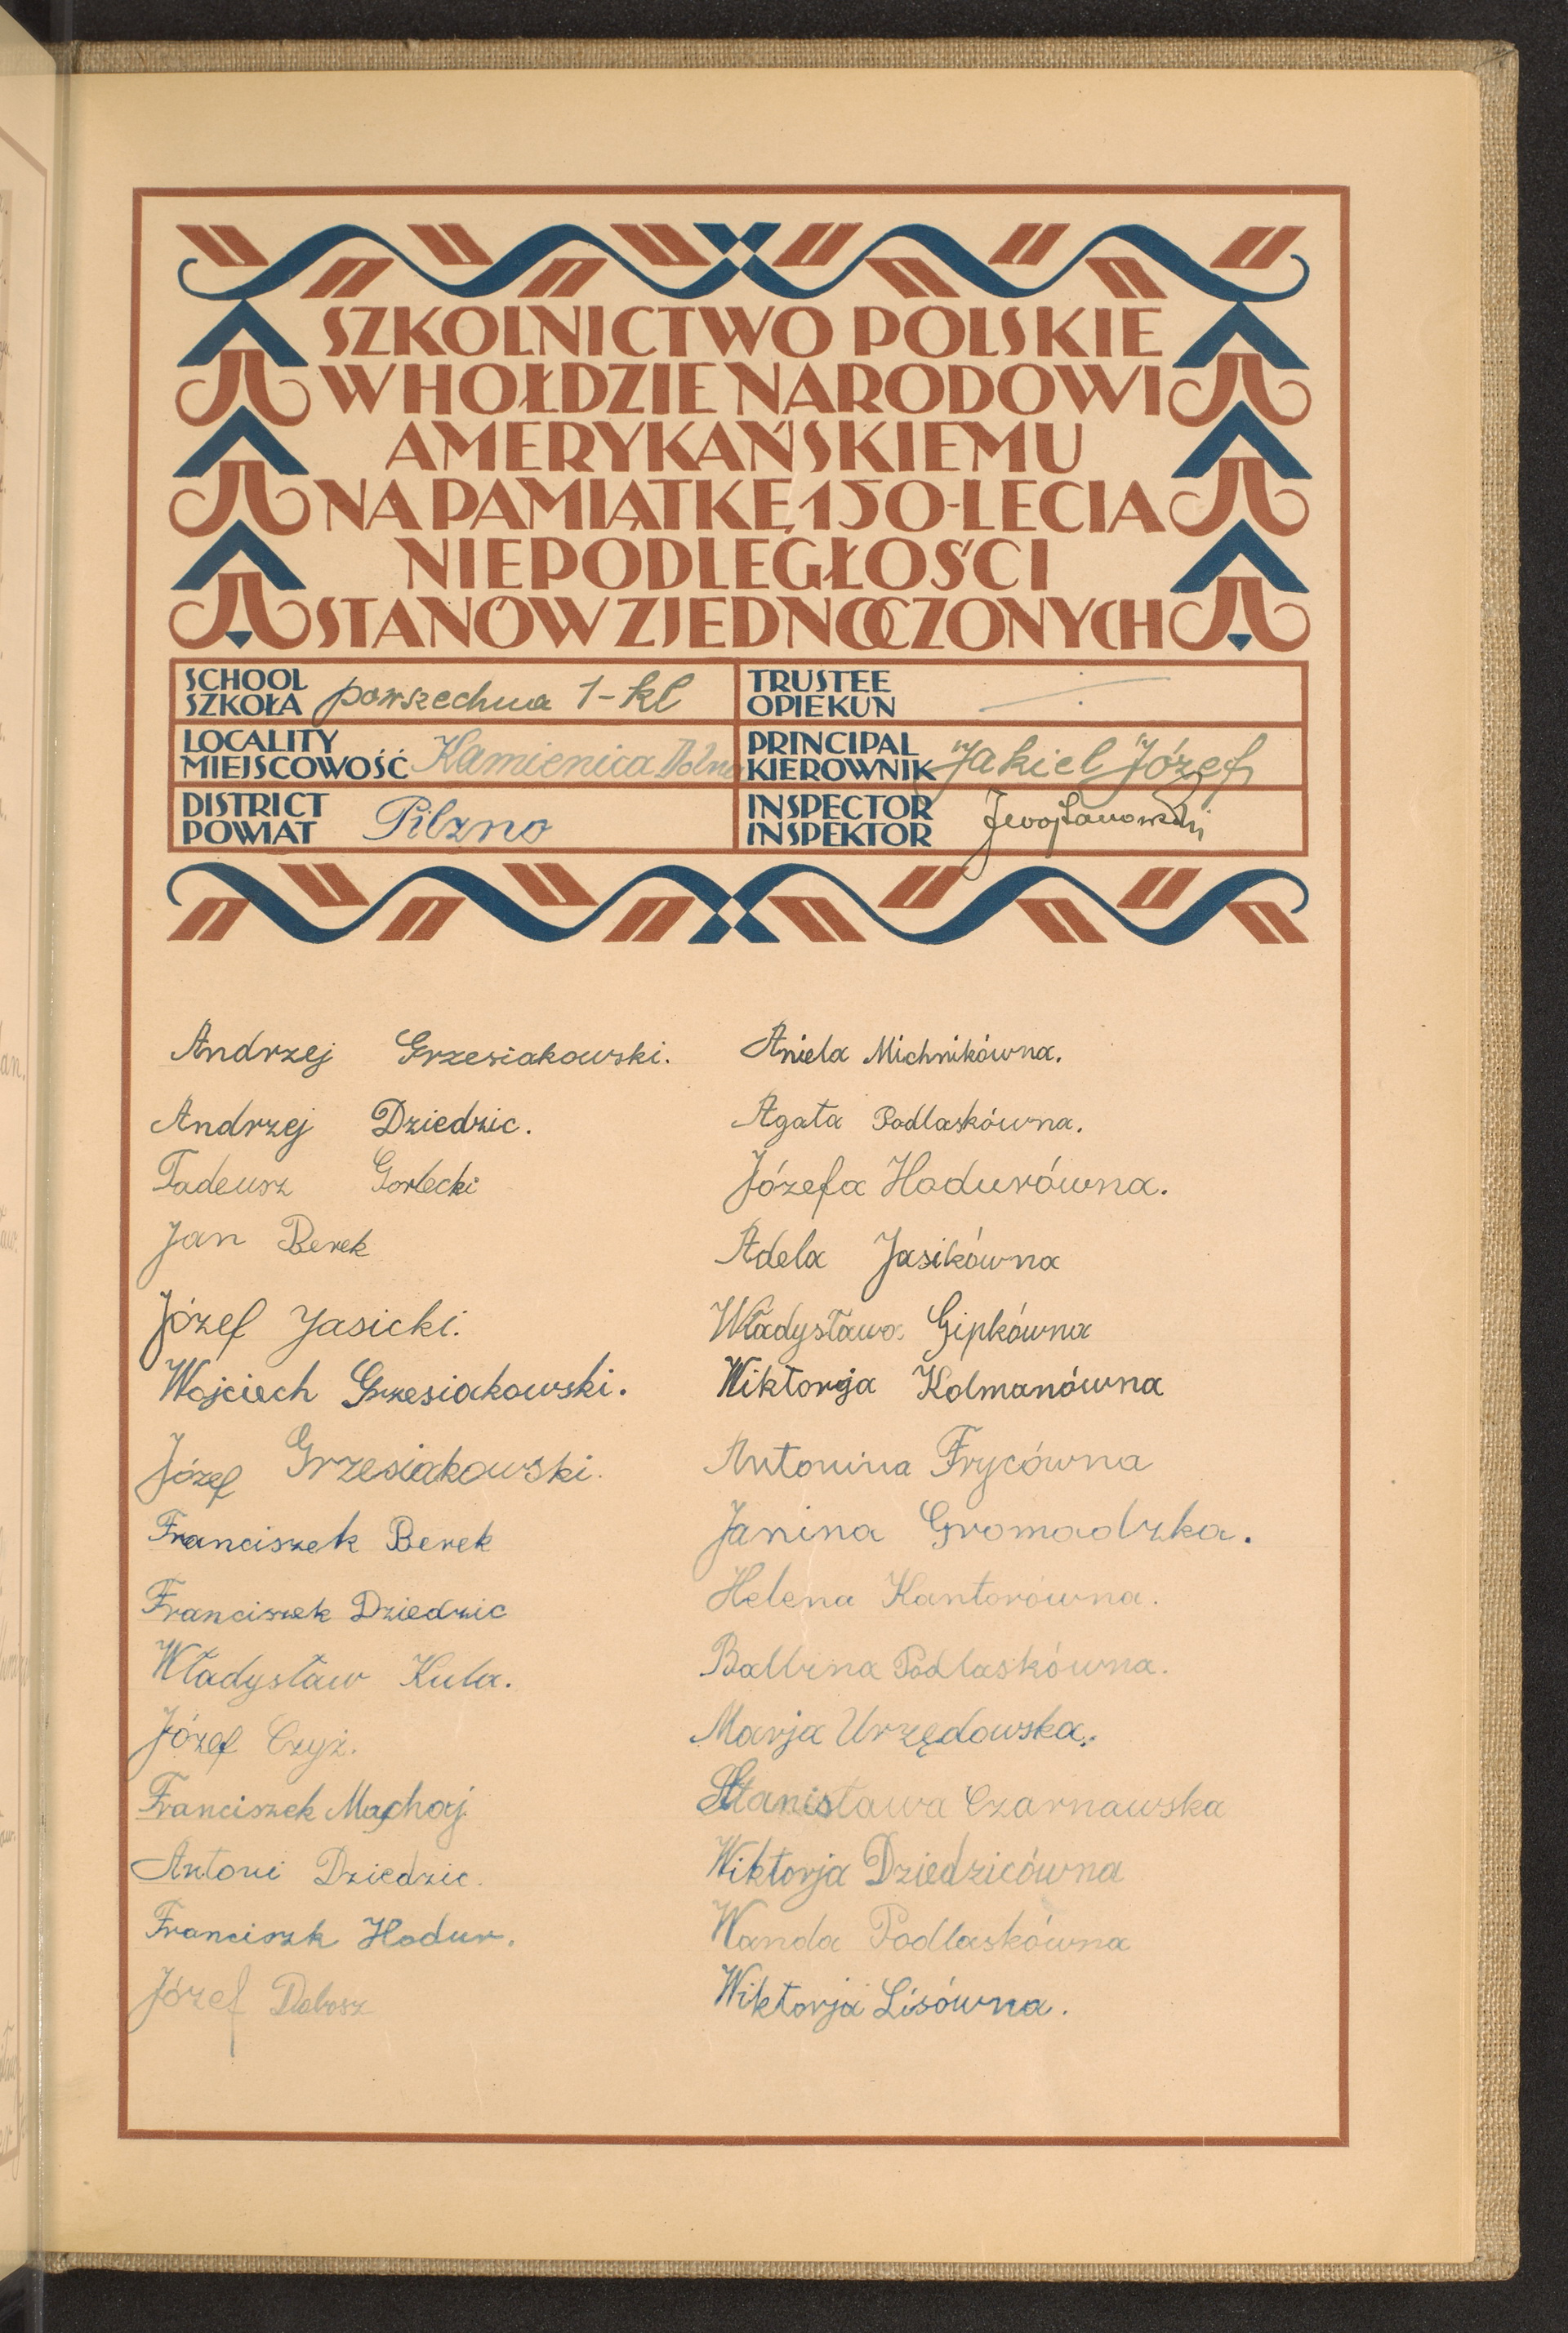 SZKOLNICTWO POLSKIE
W HOŁDZIE NARODOWI
AMERYKAŃSKIEMU
NA PAMIĄTKĘ 150-LECIA
NIEPODLEGŁOŚCI
STANÓW ZJEDNOCZONYCH
SCHOOL
SZKOŁA powszechna 1-kl
TRUSTEE
OPIEKUN
LOCALITY
MIEJSCOWOŚĆ Kamienica Dolna
PRINCIPAL
KIEROWNIK Jakiel Józef
DISTRICT
POWIAT Pilzno
INSPECTOR
INSPEKTOR
Andrzej Grzesiakowski.
Andrzej Dziedzic.
Tadeusz Gorlecki
Jan Berek
Józef Jasicki.
Wojciech Grzesiakowski.
Józef Grzesiakowski.
Franciszek Berek
Franciszek Dziedzic
Władysław Kula.
Józef Czyż.
Franciszek Machaj
Antoni Dziedzic.
Franciszk Hodur.
Józef Dobosz
Aniela Michnikówna.
Agata Podlaskówna.
Józefa Hodurówna.
Adela Jasikówna
Władysława Gipkówna
Wiktorja Kolmanówna
Antonina Frycówna
Janina Gromadzka.
Helena Kantorówna.
Balbina Podlaskówna.
Marja Urzędowska.
Stanisława Czarnawska
Wiktorja Dziedzicówna
Wanda Podlaskówna
Wiktorja Lisówna.